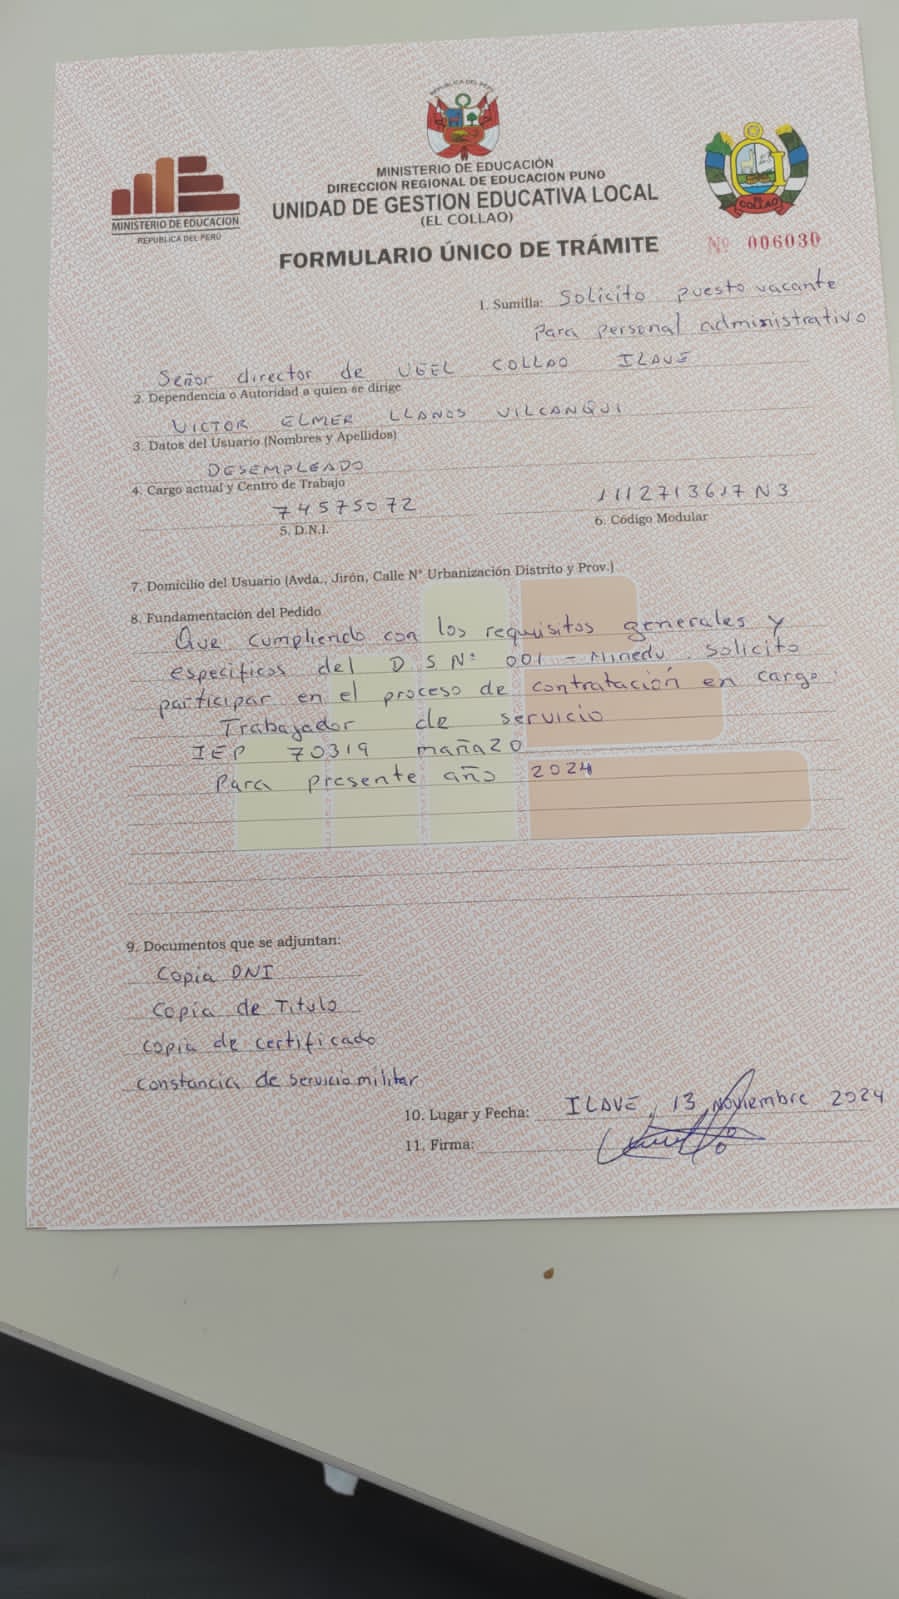 REPUBLICA DEL PERÚ
MINISTERIO DE EDUCACIÓN
DIRECCION REGIONAL DE EDUCACION PUNO
UNIDAD DE GESTION EDUCATIVA LOCAL
(EL COLLAO)
MINISTERIO DE EDUCACION
REPUBLICA DEL PERÚ
COLLAO
FORMULARIO ÚNICO DE TRÁMITE
Nº 006030
1. Sumilla: Solicito puesto vacante
para personal administrativo
Señor director de UGEL COLLAO ILAVE
2. Dependencia o Autoridad a quien se dirige
VICTOR ELMER LLANOS VILCANQUI
3. Datos del Usuario (Nombres y Apellidos)
DESEMPLEADO
4. Cargo actual y Centro de Trabajo
74575072 1112713617N3
5. D.N.I. 6. Código Modular
7. Domicilio del Usuario (Avda., Jirón, Calle N° Urbanización Distrito y Prov.)
8. Fundamentación del Pedido
Que cumpliendo con los requisitos generales y
especificos del D S N° 001 - Minedu. solicito
participar en el proceso de contratación en cargo
Trabajador de servicio
IEP 70319 mañazo
Para presente año 2024
9. Documentos que se adjuntan:
Copia DNI
Copia de Titulo
copia de certificado
constancia de servicio militar
10. Lugar y Fecha: ILAVE, 13 Noviembre 2024
11. Firma: